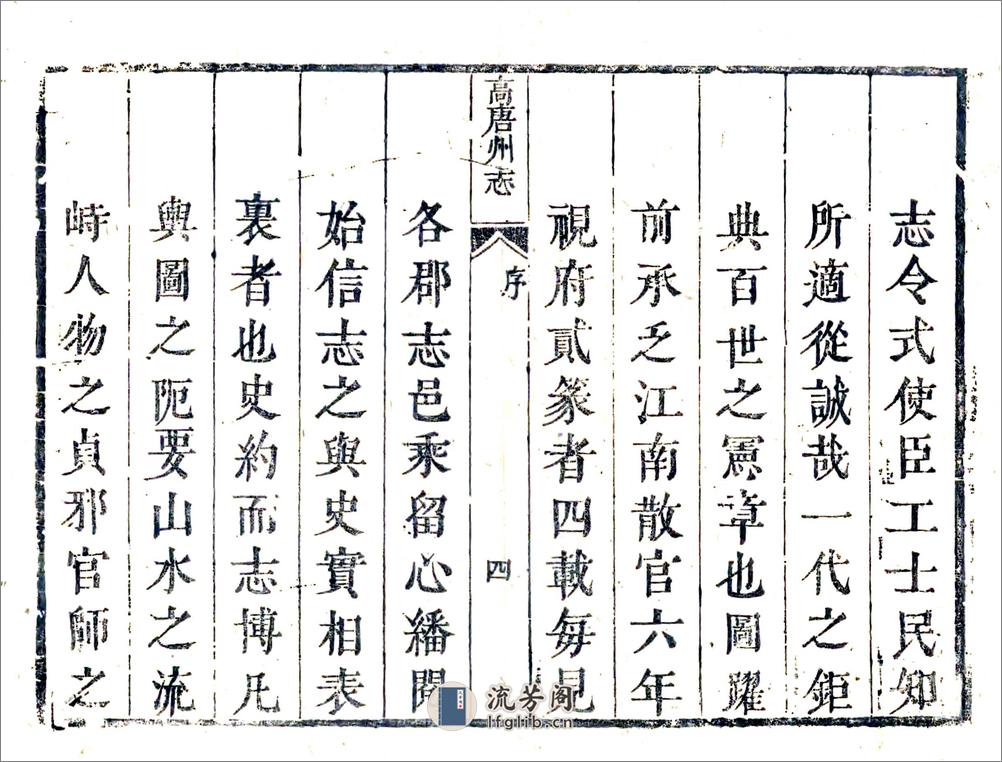 志令式使臣工士民知
所適從誠哉一代之鉅
典百世之憲章也圖躍
前承乏江南散官六年
視府貳篆者四載每見
高唐州志
序
四
各郡志邑乘留心繙閱
始信志之與史實相表
裏者也史約而志博凡
輿圖之阨要山水之流
峙人物之貞邪官師之
流芳阁
lfglib.cn